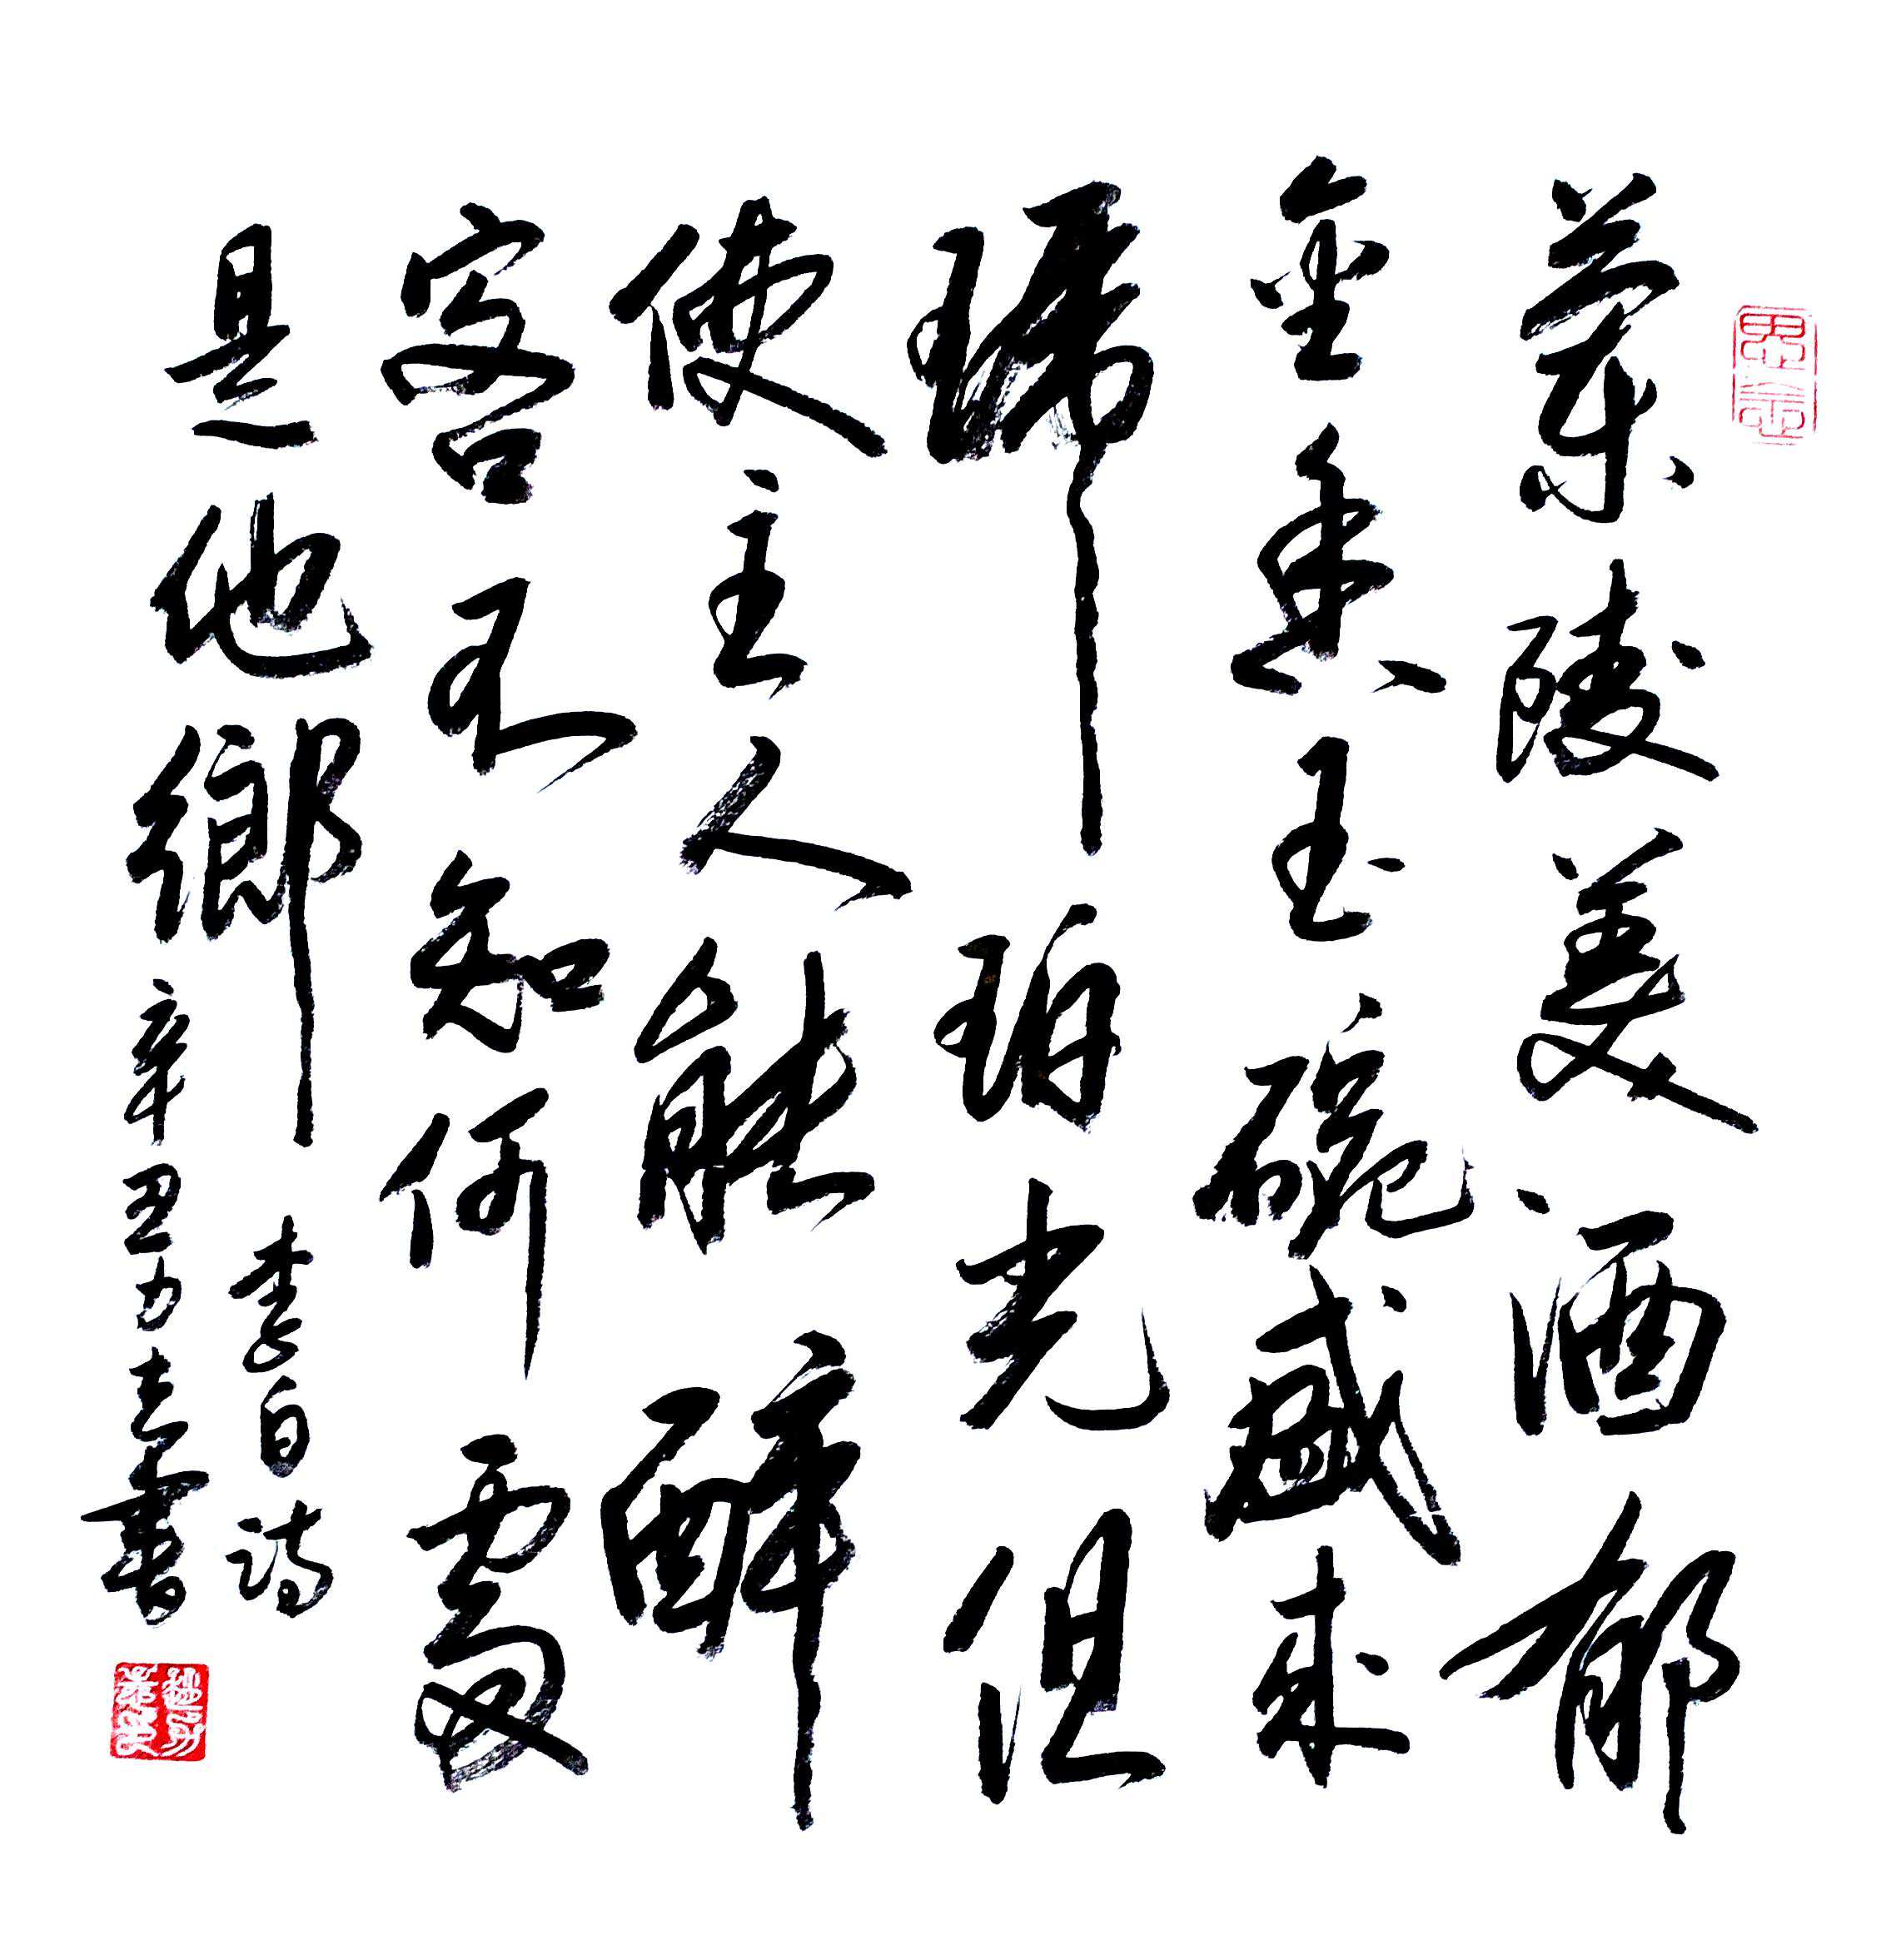 蘭陵美酒郁
金香玉碗盛来
琥珀光但
使主人能醉
客不知何處
是他鄉 李白詩
辛丑 書